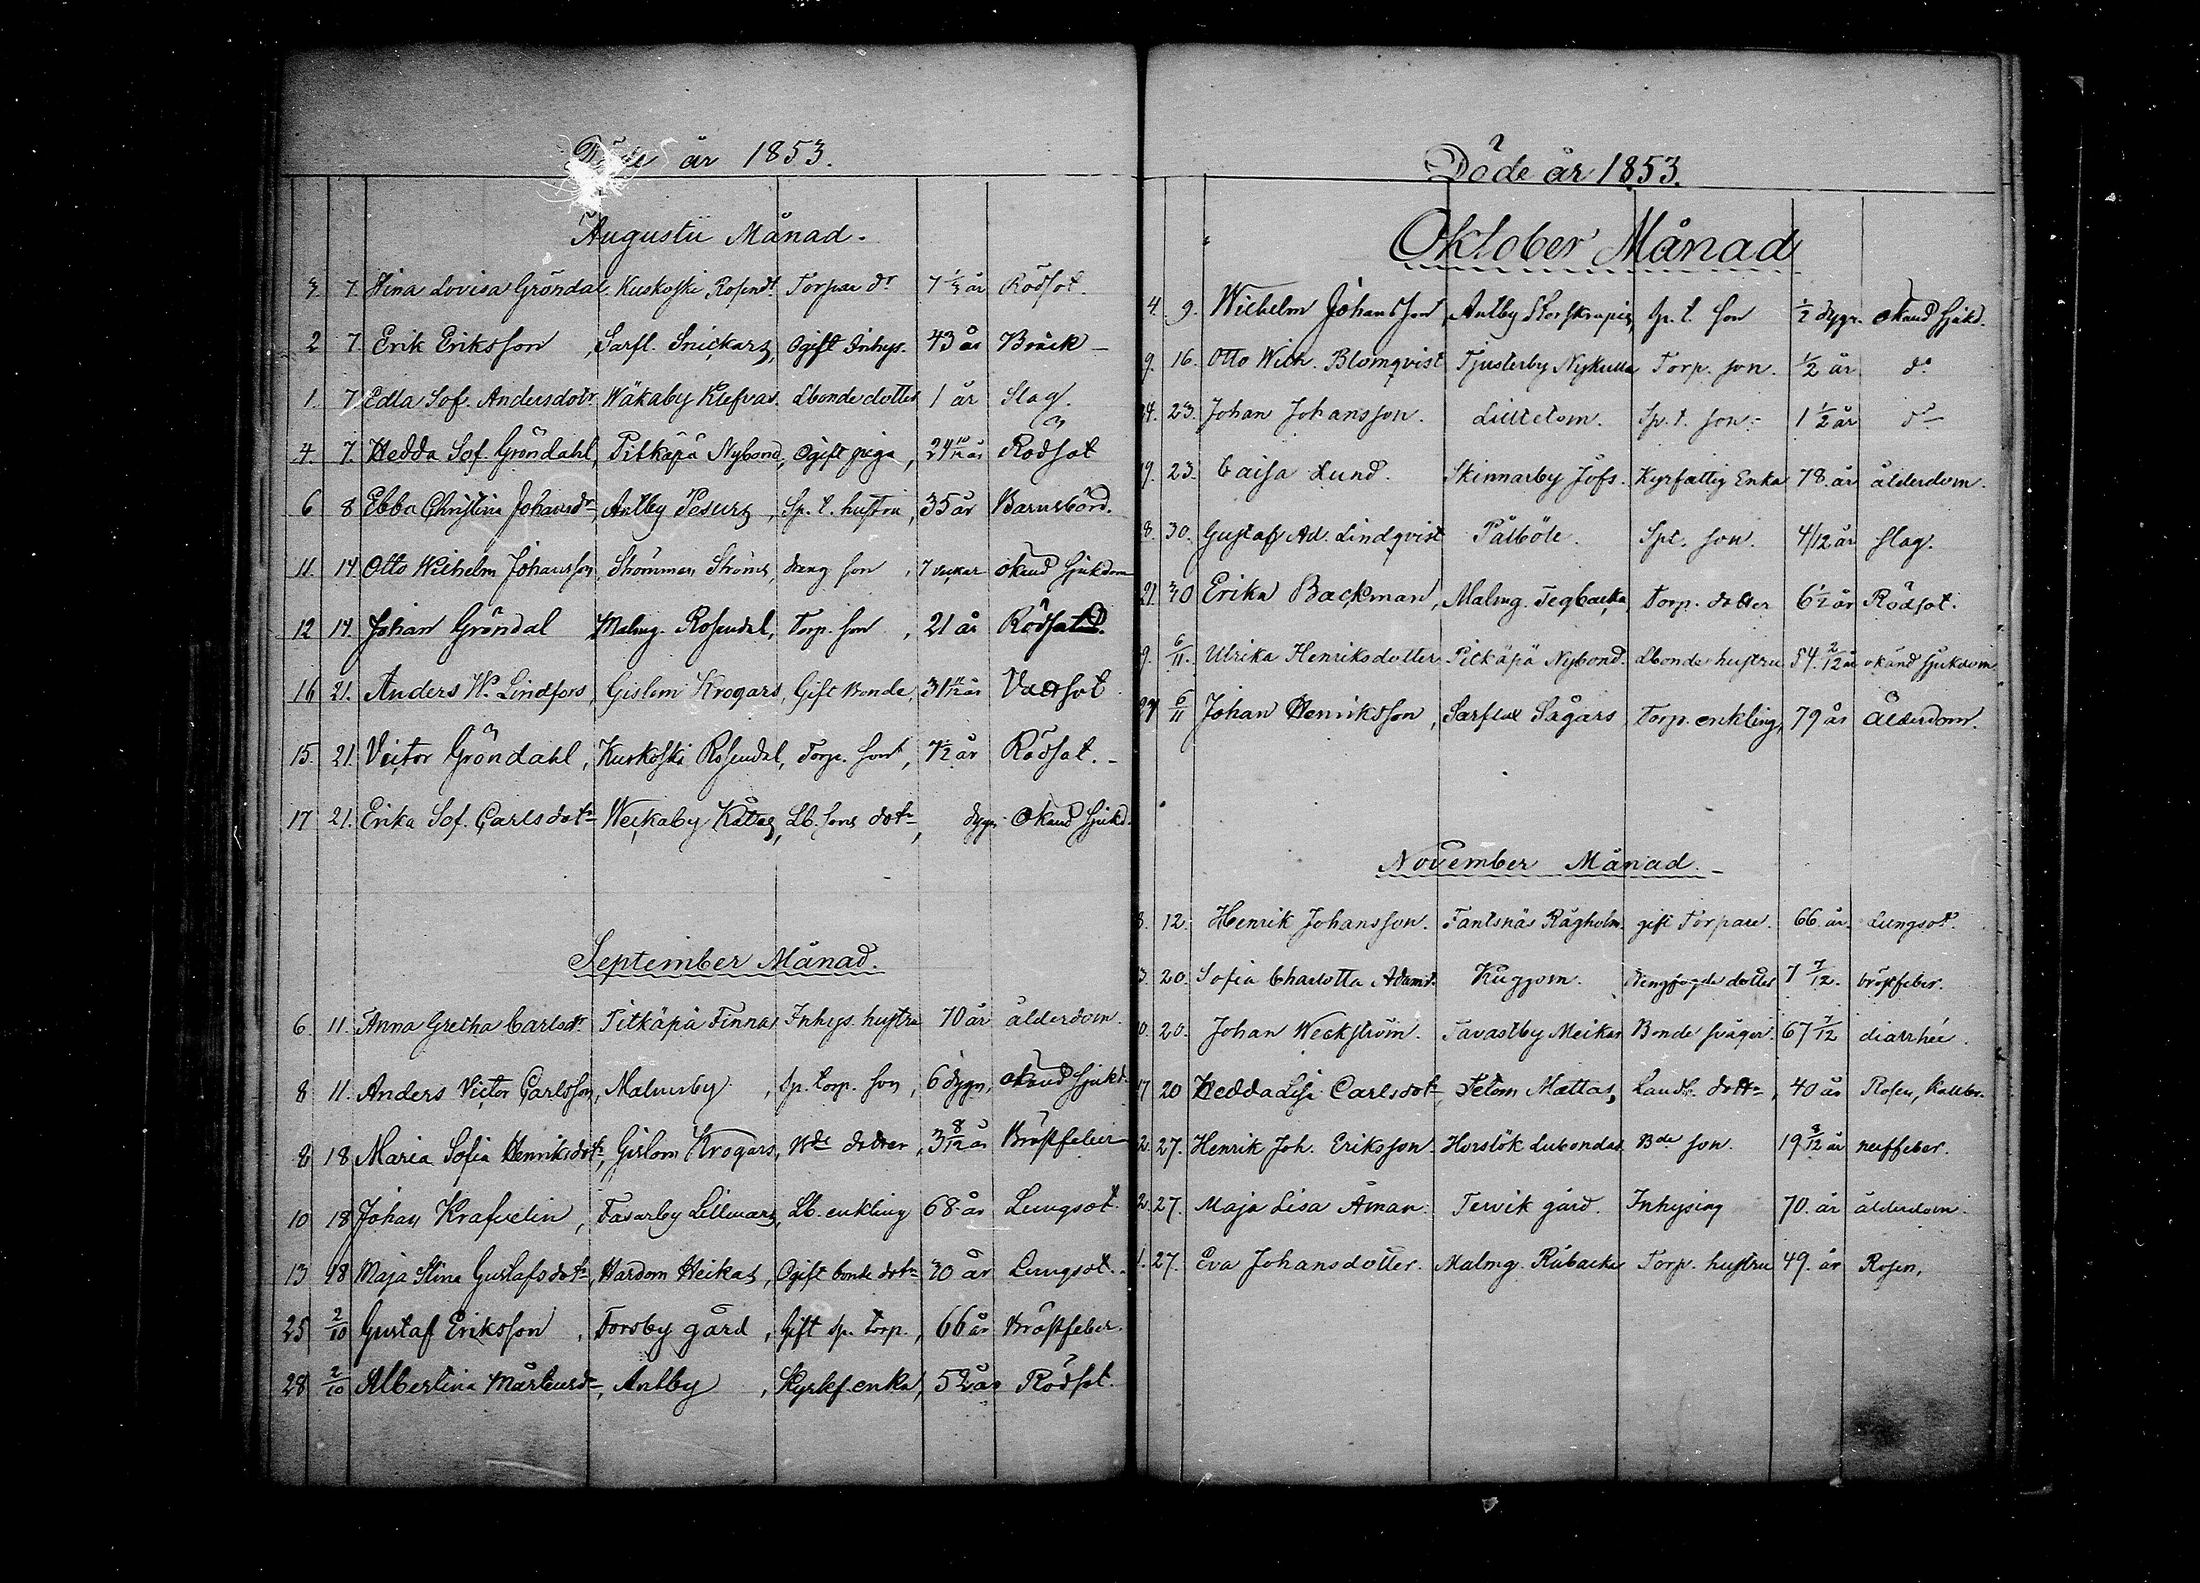 Döde år 1853.
Augusti Månad.
3. 7. Stina Lovisa Gröndal. Kuskoski Rosendl Torpar dr 7 1/2 år Rödsot.
2 7 Erik Eriksson, Sarfl. Snickars, Ogift Inhys. 43 år Bråck
1. 7 Edla Sof. Andersdotr Wäkaby Klefvas. Lbonde dotter 1 år Slag.
4. 7. Hedda Sof. Gröndahl, Pitkäpä Nybond, Ogift piga, 24 10/12 år Rödsot
6 8 Ebba Christina Johansdr, Antby Pasurs, Sp. t. hustru, 35 år Barnsbörd.
11. 14 Otto Wilhelm Johansson, Strömmen Ströms, dreng son, 7 veckor okänd sjukdom
12 14. Johan Gröndal Malmg. Rosendal, Torp. son, 21 år Rödsot.
16 21. Anders Wm Lindfors, Gislom Krogars, Gift Bonde, 31 11/12 år Vattsot
15. 21. Victor Gröndahl, Kuskoski Rosendal, Torp. son, 7 1/2 år Rödsot.
17 21. Erika Sof. Carlsdotr Weckaby Kåttas, Lb. sons dotr, dygn Okänd sjukd.
September Månad.
6. 11. Anna Gretha Carlsdr. Pitkäpä Finnas Inhys. hustru 70 år ålderdom.
8 11. Anders Victor Carlsson, Malmsby, Sp. torp. son, 6 dygn, okänd sjukd.
8 18 Maria Sofia Henriksdotr, Gislom Krogars, Bde dotter, 3 8/12 år Bröstfeber
10 18 Johan Krafvelin, Favarby Lillmars, Lb. enkling 68 år Lungsot.
13 18 Maja Stina Gustafsdotr, Hardom Heikas, Ogift bonde dotr 30 år Lungsot.
25 2/10 Gustaf Eriksson, Forsby gård, Gift sp. torp., 66 år Bröstfeber.
28 2/10 Albertina Mårtensdr, Antby, Kyrkf. enka, 52 år Rödsot.
Döde år 1853.
Oktober Månad
4. 9. Wilhelm Johansson, Antby Storskrapis, Sp. t. son 1/2 dygn. okänd sjukd.
9. 16. Otto Wilh. Blomqvist Tjusterby Nykulla Torp. son. 1/2 år do
14. 23. Johan Johansson. Liilletom. Sp. t. son. 1 1/2 år do
19. 23. Caisa Lund. Skinnarby Jofs. Kyrfattig Enka 78. år ålderdom.
8. 30. Gustaf Ad. Lindqvist Pålböle. Spt. son. 4/12 år slag.
21. 30 Erika Backman, Malmg. Tegbacka, Torp. dotter 6 1/2 år Rödsot.
9. 6/11. Ulrika Henriksdotter Pitkäpä Nybond. Lbonde hustru 54. 2/12 år okänd sjukdom
27 6/11 Johan Henriksson, Sarflax Sågars Torp. enkling, 79 år Ålderdom.
November Månad.
3. 12. Henrik Johansson. Fantsnäs Rågholm. gift Torpare. 66 år. Lungsot.
3. 20. Sofia Charlotta Adamsd. Kuggom. Rengfogde dotter 7 7/12. bröstfeber.
0. 20. Johan Weckström. Tavastby Meikas Bonde svåger. 67 7/12 diarrhée.
17 20 Hedda Lisa Carlsdotr, Tetom Mattas, Landb. dottr, 40 år Rosen, Kallbr.
2. 27. Henrik Joh. Eriksson. Horslök Lubondas Bde son. 19 8/12 år nerffeber.
2. 27. Maja Lisa Åman. Tervik gård. Inhysing 70. år ålderdom.
1. 27. Eva Johansdotter. Malmg. Råbacka Torp. hustru 49. år Rosen,